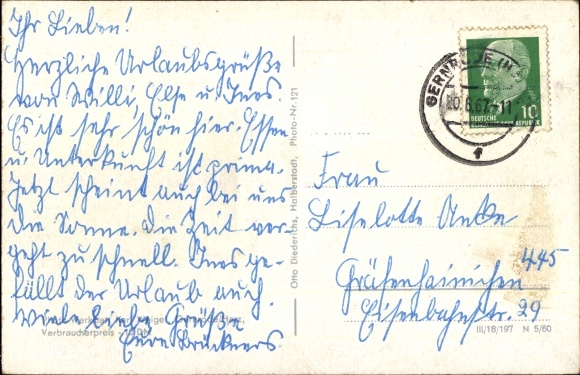 Ihr Lieben!
Herzliche Urlaubsgrüße
von Willi, Else u. Ines.
Es ist sehr schön hier. Essen
u. Unterkunft ist prima.
Jetzt scheint auch bei uns
die Sonne. Die Zeit ver-
geht zu schnell. Ines ge-
fällt der Urlaub auch.
Viele liebe Grüße
Eure Brückners.
Verbraucherpreis
Otto Diederichs, Halberstadt, Photo-Nr. 121
GERNRODE (H
10.8.67.-11
f
10
DEUTSCHE
REPUBLIK
Frau
Liselotte Anke
445
Gräfenhainichen
Eisenbahnstr. 29
III/18/197 N 5/60